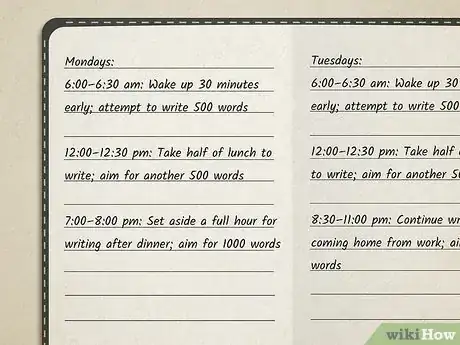 Mondays:
6:00–6:30 am: Wake up 30 minutes
early; attempt to write 500 words
12:00–12:30 pm: Take half of lunch to
write; aim for another 500 words
7:00–8:00 pm: Set aside a full hour for
writing after dinner; aim for 1000 words
Tuesdays:
6:00–6:30 am: Wake up 30
early; attempt to write 500
12:00–12:30 pm: Take half
to write; aim for another
8:30–11:00 pm: Continue
coming home from work;
words
wikiHow